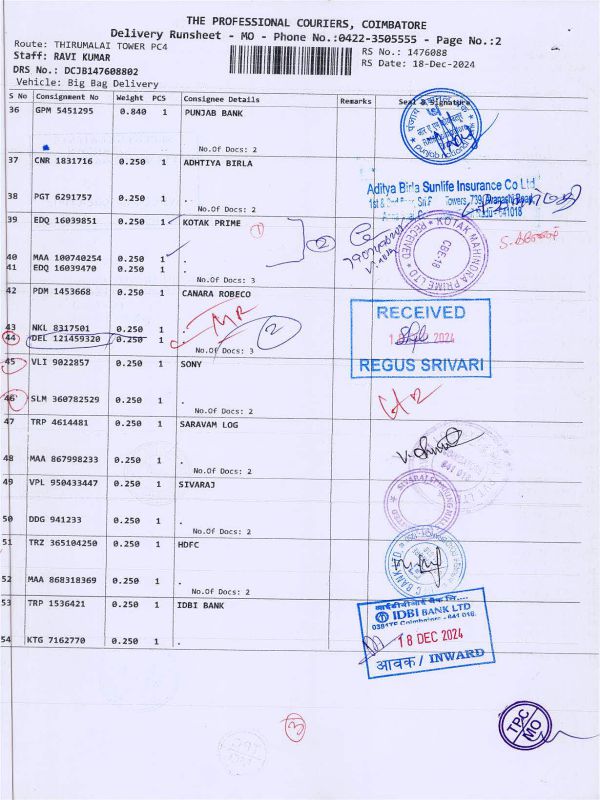 THE PROFESSIONAL COURIERS, COIMBATORE
Delivery Runsheet - MO - Phone No.:0422-3505555 - Page No.:2
Route: THIRUMALAI TOWER PC4
RS No.: 1476088
Staff: RAVI KUMAR
RS Date: 18-Dec-2024
DRS No.: DCJB147608802
Vehicle: Big Bag Delivery
S No Consignment No Weight PCS Consignee Details Remarks Seal & Signature
36 GPM 5451295 0.840 1 PUNJAB BANK
No.Of Docs: 2
punjab national
37 CNR 1831716 0.250 1 ADHTIYA BIRLA
Aditya Birla Sunlife Insurance Co Ltd
38 PGT 6291757 0.250 1 .
No.Of Docs: 2
39 EDQ 16039851 0.250 1 KOTAK PRIME
1
2
KOTAK MAHINDRA PRIME LTD
RECEIVED
CBE-18
40 MAA 100740254 0.250 1 .
41 EDQ 16039470 0.250 1 .
No.Of Docs: 3
42 PDM 1453668 0.250 1 CANARA ROBECO
RECEIVED
2024
REGUS SRIVARI
43 NKL 8317501 0.250 1 .
44 DEL 121459320 0.250 1 .
No.Of Docs: 3
2
45 VLI 9022857 0.250 1 SONY
46 SLM 360782529 0.250 1 .
No.Of Docs: 2
47 TRP 4614481 0.250 1 SARAVAM LOG
48 MAA 867998233 0.250 1 .
No.Of Docs: 2
49 VPL 950433447 0.250 1 SIVARAJ
50 DDG 941233 0.250 1 .
No.Of Docs: 2
51 TRZ 365104250 0.250 1 HDFC
52 MAA 868318369 0.250 1 .
No.Of Docs: 2
53 TRP 1536421 0.250 1 IDBI BANK
IDBI BANK LTD
18 DEC 2024
आवक / INWARD
54 KTG 7162770 0.250 1 .
3
TPC
MO